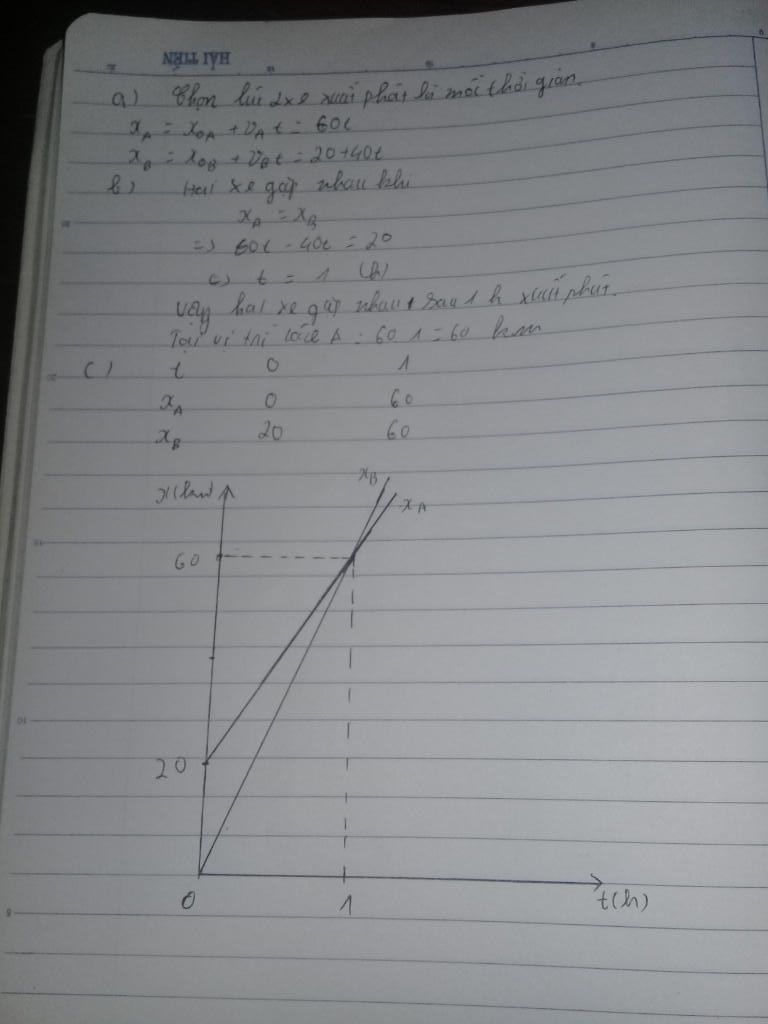 HẢI TIẾN
a) Chọn lúc 2 xe xuất phát là mốc thời gian.
x_A = x_0A + v_A t = 60t
x_B = x_0B + v_B t = 20+40t
b) Hai xe gặp nhau khi
x_A = x_B
=> 60t - 40t = 20
<=> t = 1 (h)
Vậy hai xe gặp nhau sau 1 h xuất phát.
Tại vị trí cách A : 60.1 = 60 km
c) t 0 1
x_A 0 60
x_B 20 60
x_B
x(km)
x_A
60
20
0 1 t(h)